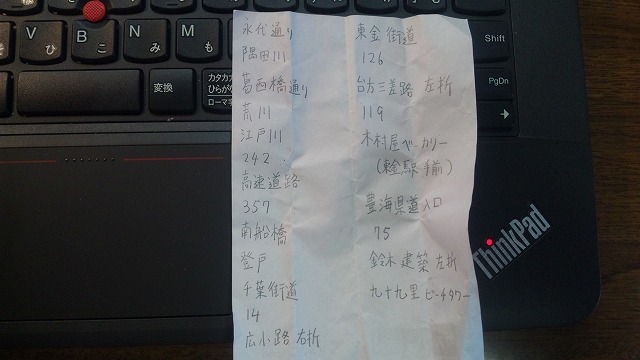 永代通り
隅田川
葛西橋通り
荒川
江戸川
242
高速道路
357
南船橋
登戸
千葉街道
14
広小路 右折
東金街道
126
台方三差路 左折
119
木村屋ベーカリー
(東金駅手前)
豊海県道入口
75
鈴木建築 左折
九十九里ビーチタワー
V ひ
B こ
N み
M も
変換
カタカナ
ひらがな
ローマ字
Shift
PgDn
ThinkPad